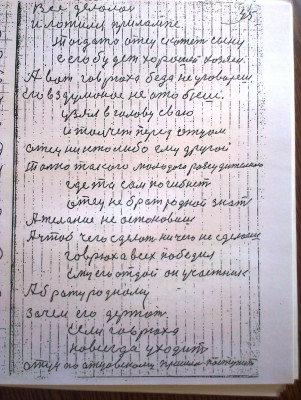 25
Все делалах
и ложилиц при лампе
тогда то отец скажет сыну
с его будет хороший хозяин.
А вот говрюха беда не уговореш
его вздумоное не отобьеш.
узял в голову сваю
и толчет перед отцом
отец ни кто либо ему другой
толко такого молодого
где то сам погибнет
отец не брат родной знат
А желание не остоновиш
А чтоб чего сделат ничего не сделаиш
говрюха всех победил
ему его отдай он участник
А брату родному
зачем его держат.
если говрюха
навсегда уходит
отец по отцовскому пришлос поступит